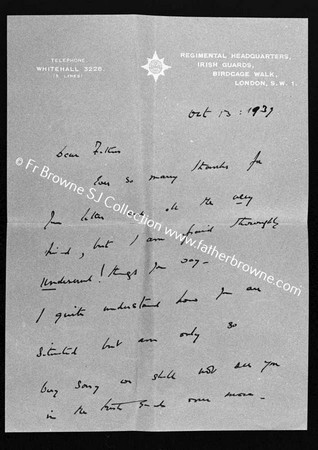 TELEPHONE
WHITEHALL 3226.
(5 LINES)
REGIMENTAL HEADQUARTERS,
IRISH GUARDS,
BIRDCAGE WALK,
LONDON, S.W. 1.
Oct 13 : 1939
Dear Father
Ever so many thanks for
your letter & all the very
kind, but I am afraid thoroughly
undeserved! things you say -
I quite understand how you are
situated but am only so
very sorry we shall not see you
in the Irish Guards once more -
© Fr Browne SJ Collection www.fatherbrowne.com